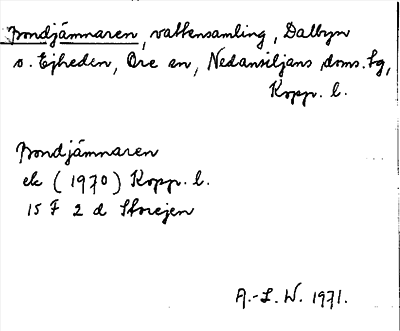 Brondjämnaren, vattensamling, Dalbyn
o. Ejheden, Ore sn, Nedansiljans doms. tg,
Kopp. l.
Brondjämnaren
ek (1970) Kopp. l.
15 F 2 d Storejen
A.-L. W. 1971.